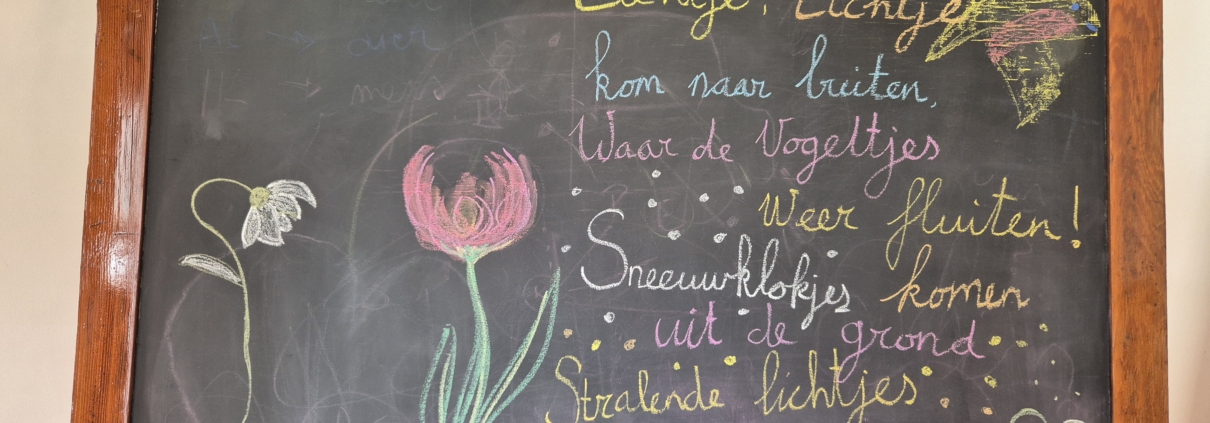 Lichtje, Lichtje
kom naar buiten,
Waar de Vogeltjes
Weer fluiten!
Sneeuwklokjes komen
uit de grond
Stralende lichtjes